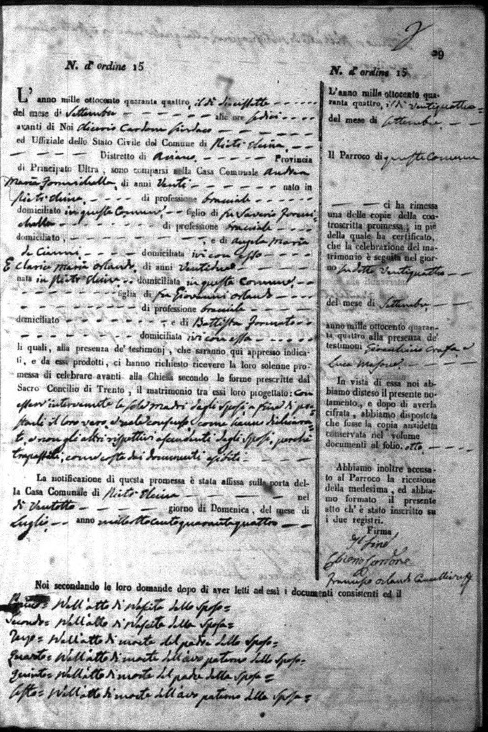 29
N. d'ordine 15
L'anno mille ottocento quaranta quattro, il dì diciassette
del mese di Settembre alle ore sedici
avanti di Noi Cardone Sindaco
ed Uffiziale dello Stato Civile del Comune di
Distretto di Provincia
di Principato Ultra, sono comparsi nella Casa Comunale Andrea
Maria di anni Venti nato in
di professione bracciale
domiciliato in questo Comune figlio di fu Saverio
di professione bracciale
domiciliato, e di Angela Maria
domiciliata ivi con esso
E Clara Maria Orlando di anni Ventidue
nata in domiciliata in questo Comune
figlia di fu Giovanni Orlando
di professione bracciale
domiciliato e di Battista
domiciliata ivi con essa
li quali, alla presenza de' testimonj, che saranno qui appresso indica-
ti, e da essi prodotti, ci hanno richiesto ricevere la loro solenne pro-
messa di celebrare avanti alla Chiesa secondo le forme prescritte dal
Sacro Concilio di Trento, il matrimonio tra essi loro progettato: con
esservi intervenute le sole madri degli Sposi a fine di pre-
starli il loro vero, e reale consenso come hanno dichiara-
to, e non gli altri rispettivi ascendenti degli Sposi, perchè
trapassati, come costa dai documenti esibiti
La notificazione di questa promessa è stata affissa sulla porta del-
la Casa Comunale di nel
dì Ventotto giorno di Domenica, del mese di
Luglio anno milleottocentoquarantaquattro
Noi secondando le loro domande dopo di aver letti ad essi i documenti consistenti ed il
Primo= Nell'atto di Nascita dello Sposo=
Secondo= Nell'atto di Nascita della Sposa=
Terzo= Nell'atto di morte del padre dello Sposo=
Quarto= Nell'atto di morte dell'avo paterno dello Sposo=
Quinto= Nell'atto di morte del padre della Sposa=
Sesto= Nell'atto di morte dell'avo paterno della Sposa=
N. d'ordine 15
L'anno mille ottocento qua-
ranta quattro, il dì Ventiquattro
del mese di Settembre
Il Parroco di questo Comune
ci ha rimessa
una delle copie della con-
troscritta promessa; in piè
della quale ha certificato,
che la celebrazione del ma-
trimonio è seguita nel gior-
no Ventiquattro
del mese di Settembre
anno mille ottocento quaran-
ta quattro alla presenza de'
testimoni
Luca
In vista di essa noi ab-
biamo disteso il presente no-
tamento, e dopo di averla
cifrata, abbiamo disposto
che fusse la copia anzidetta
conservata nel volume
documenti al folio, otto
Abbiamo inoltre accusa-
to al Parroco la ricezione
della medesima, ed abbia-
mo formato il presente
atto ch' è stato inscritto su
i due registri.
Firma
Il Sindaco
Cardone
Francesco Orlando